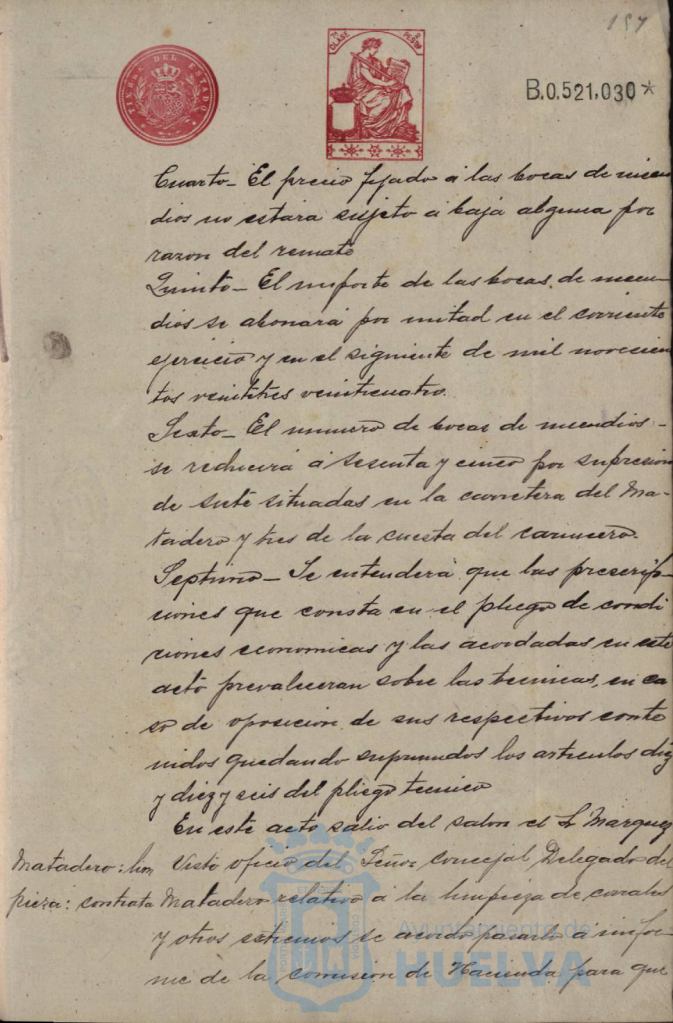 157
TIMBRE DEL ESTADO
CLASE
PESETAS
B.0.521,030*
Cuarto_ El precio fijado á las bocas de incen
dios no estará sujeto á baja alguna por
razon del remate
Quinto_ El importe de las bocas de incen-
dios se abonará por mitad en el corriente
ejercicio y en el siguiente de mil novecien
tos veintitres veinticuatro.
Sexto_ El numero de bocas de incendios-
se reducirá á sesenta y cinco por supresion
de siete situadas en la carretera del Ma-
tadero y tres de la cuesta del carnicero.
Septimo_ Se entenderá que las prescrip-
ciones que consta en el pliego de condi
ciones economicas y las acordadas en este
acto prevaleceran sobre las tecnicas, en ca
so de oposicion de sus respectivos conte
nidos quedando suprimidos los articulos diez
y diez y seis del pliego tecnico
En este acto salio del salon el Sr Marquez
Matadero: lim Visto oficio del Señor concejal Delegado del
pieza: contrata Matadero relativo á la limpieza de corrales
y otros extremos se acordó pasarlo á infor-
me de la comision de Hacienda para que
Ayuntamiento de
HUELVA